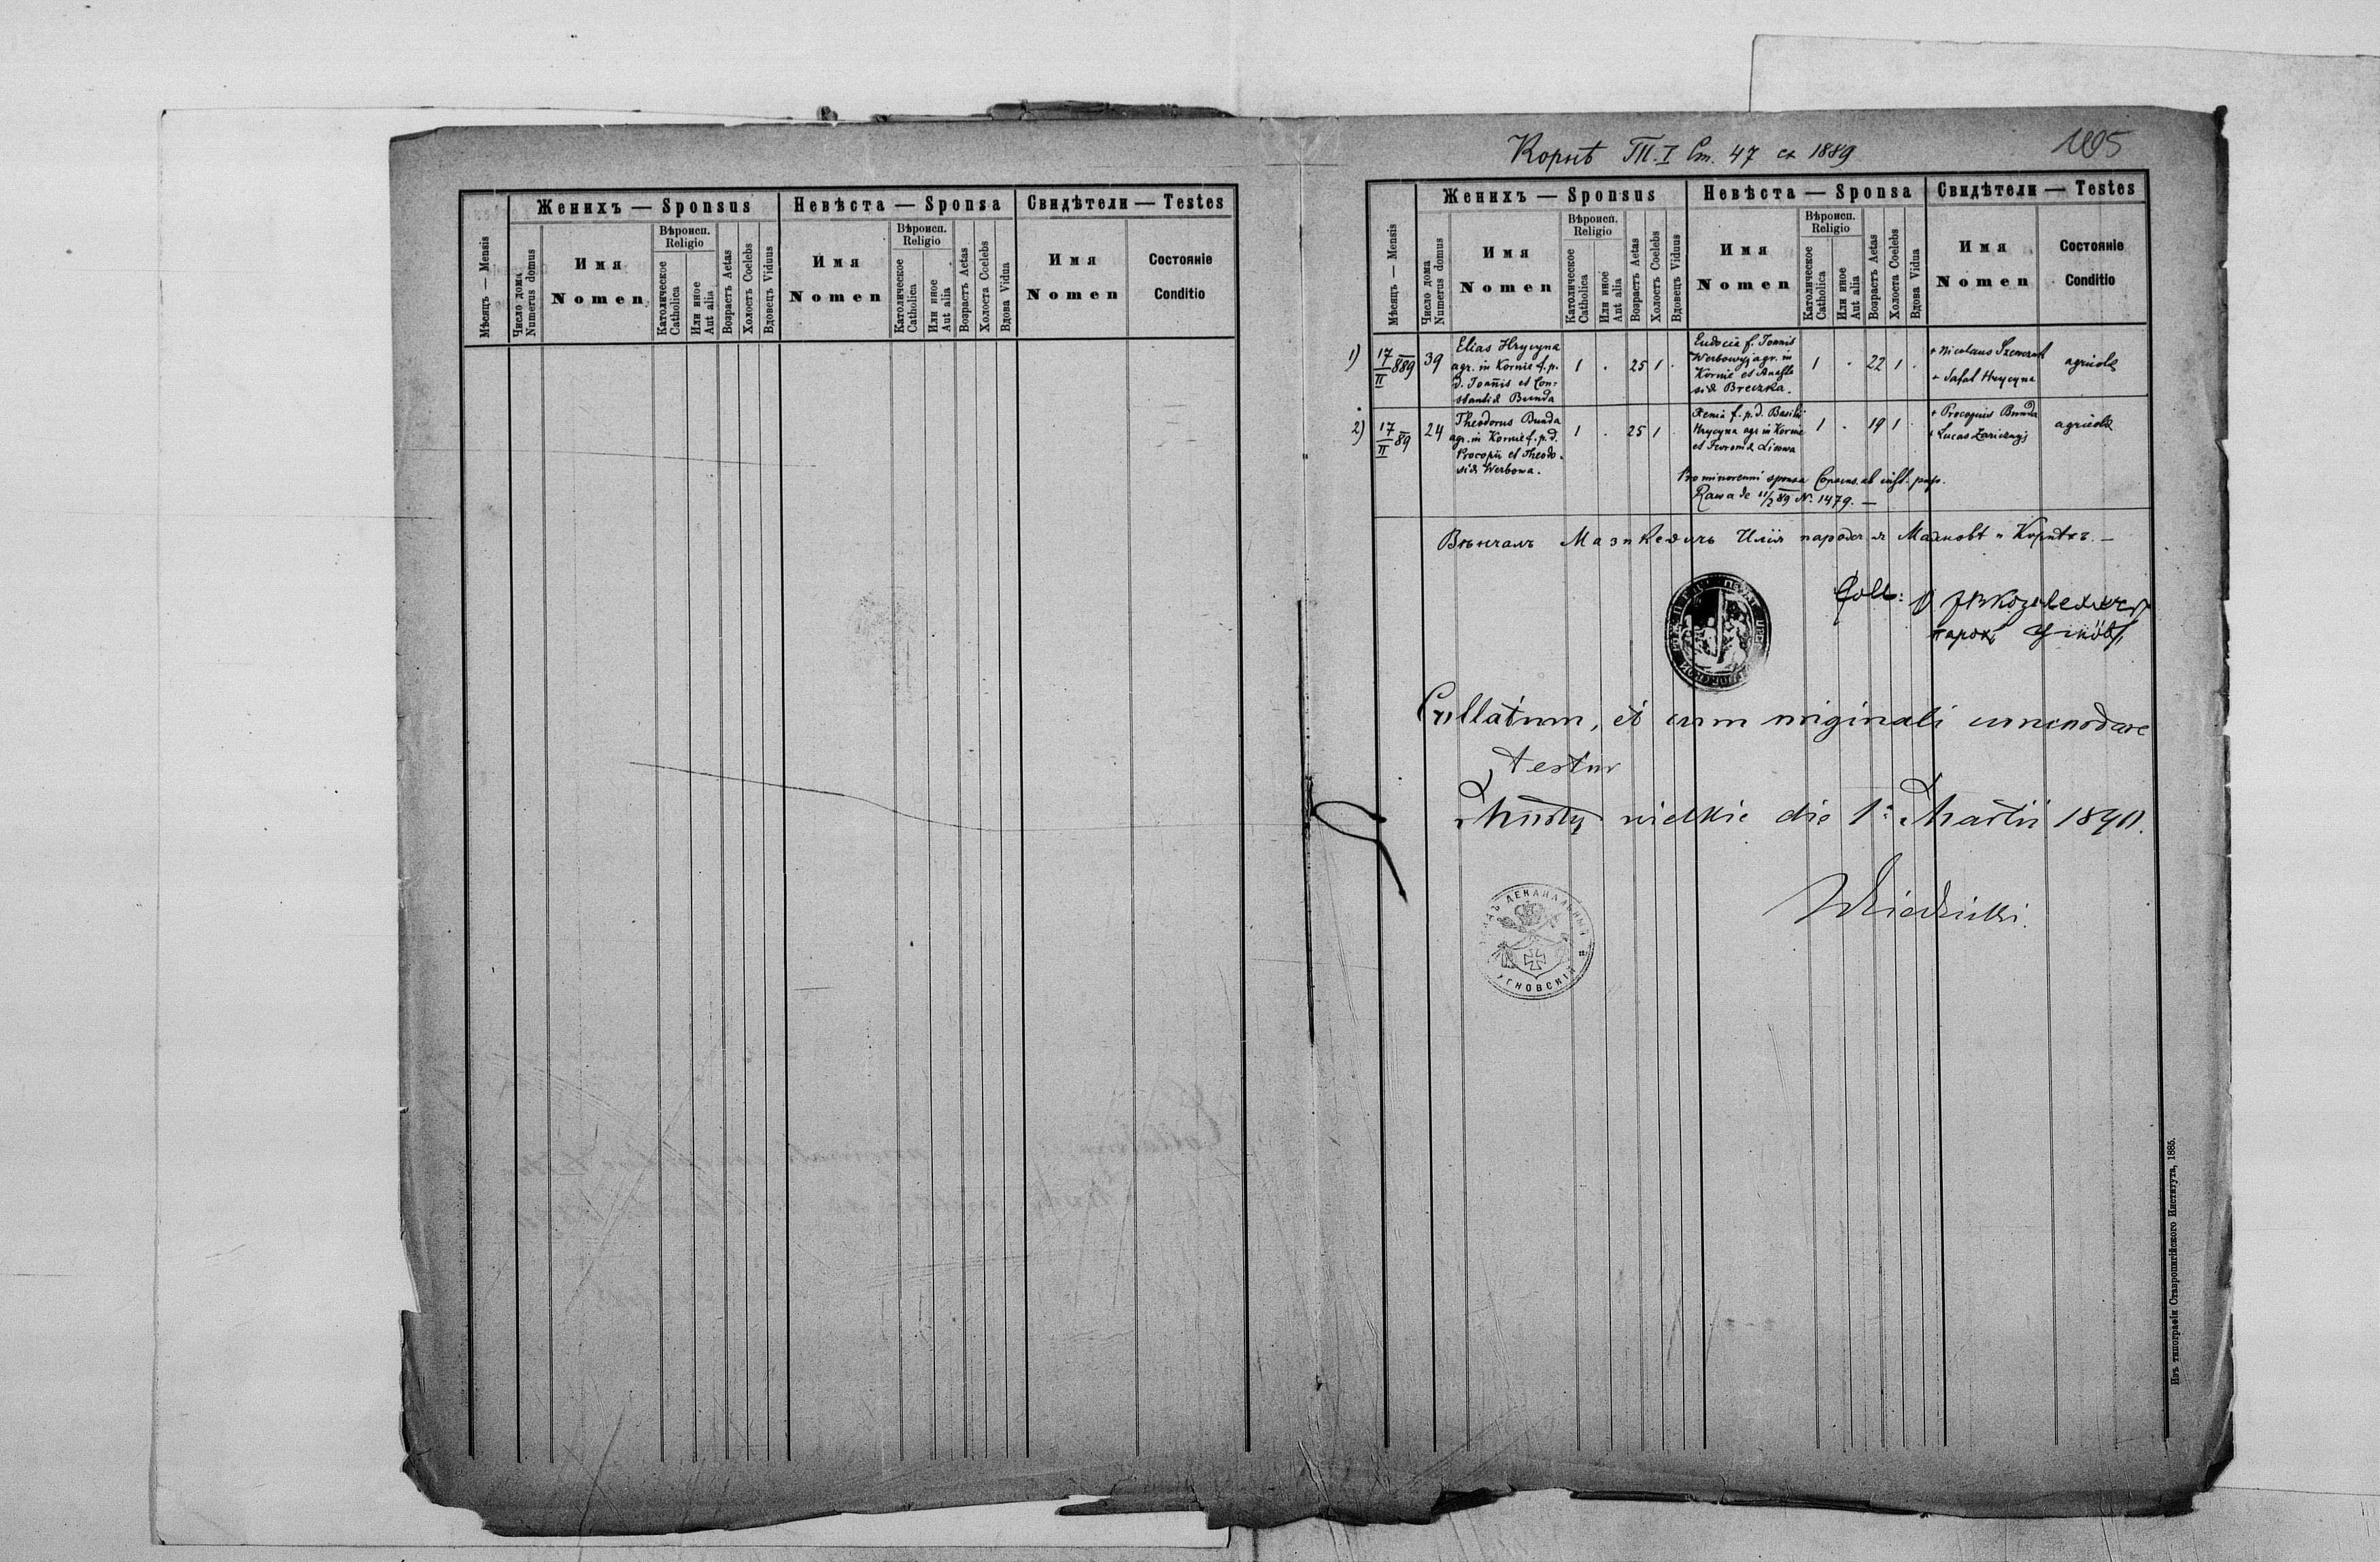 Женихъ — Sponsus
Невѣста — Sponsa
Свидѣтели — Testes
Мѣсяцъ — Mensis
Число дома
Numerus domus
Имя
Nomen
Вѣроисп.
Religio
Католическое
Catholica
Или иное
Aut alia
Возрастъ Aetas
Холостъ Coelebs
Вдовецъ Viduus
Имя
Nomen
Вѣроисп.
Religio
Католическое
Catholica
Или иное
Aut alia
Возрастъ Aetas
Холоста Coelebs
Вдова Vidua
Имя
Nomen
Состояніе
Conditio
Корнѣ Т.I Ст. 47 1889
105
Женихъ — Sponsus
Невѣста — Sponsa
Свидѣтели — Testes
Мѣсяцъ — Mensis
Число дома
Numerus domus
Имя
Nomen
Вѣроисп.
Religio
Католическое
Catholica
Или иное
Aut alia
Возрастъ Aetas
Холостъ Coelebs
Вдовецъ Viduus
Имя
Nomen
Вѣроисп.
Religio
Католическое
Catholica
Или иное
Aut alia
Возрастъ Aetas
Холоста Coelebs
Вдова Vidua
Имя
Nomen
Состояніе
Conditio
1)
17/II 889
39
Elias Hrycyna
agr. in Kornie f. p.
d. Joannis et Con-
stantiæ Bunda
1 . 25 1 .
Eudocia f. Joannis
Werbowyj agr. in
Kornie et Anasta
siæ Breczka.
1 . 22 1 .
+ Nicolaus
+ Hrycyna
agricolæ
2)
17/II 89
24
Theodorus Bunda
agr. in Kornie f. p. d.
Procopii et Theodo-
siæ Werbowa.
1 . 25 1
Xenia f. p. d. Basilii
Hrycyna agr in Kornie
et Lisowa
1 . 19 1
+ Procopius Bunda
+ Lucas Zaricznyj
agricolæ
Pro minorenni sponsa Consens. ab
Rawa de 11/2 89 N. 1479. —
Вѣнчалъ Илія
Coll:
парох
Collatum, et cum originali concordare
testor
Mosty wielkie die 1. Martii 1890.
ДЕКАНАЛЬНЫЙ
УГНОВСКІЙ
Изъ типографіи Ставропигійского Института, 1885.